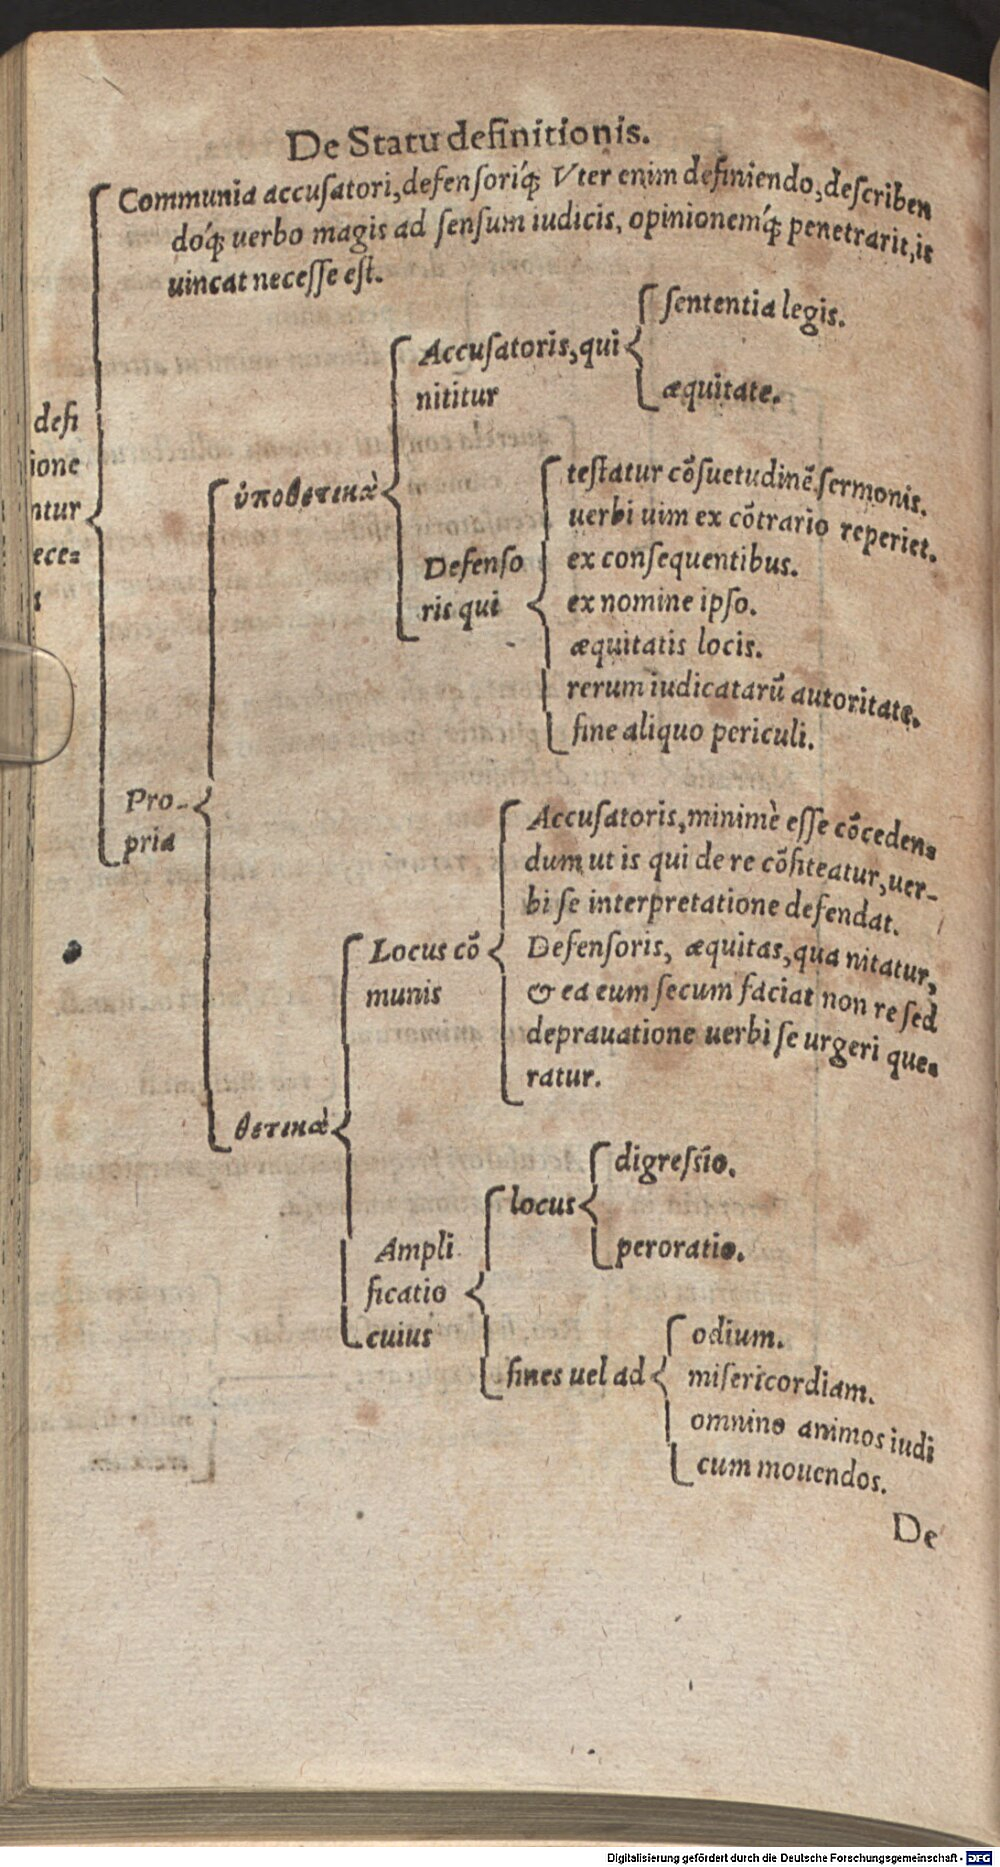 De Statu definitionis.
Communia accusatori, defensoriq́; Vter enim definiendo, describen
doq́; uerbo magis ad sensum iudicis, opinionemq́; penetrarit, is
uincat necesse est.
defi
ione
ntur
ece=
Pro-
pria
ὑποθετικὰ
Accusatoris, qui
nititur
sententia legis.
æquitate.
Defenso
ris qui
testatur cōsuetudinē sermonis.
uerbi uim ex cōtrario reperiet.
ex consequentibus.
ex nomine ipso.
æquitatis locis.
rerum iudicatarū autoritate.
fine aliquo periculi.
θετικὰ
Locus cō
munis
Accusatoris, minimè esse cōceden=
dum ut is qui de re cōfiteatur, uer-
bi se interpretatione defendat.
Defensoris, æquitas, qua nitatur,
& ea eum secum faciat non re sed
deprauatione uerbi se urgeri que=
ratur.
Ampli
ficatio
cuius
locus
digressio.
peroratio.
fines uel ad
odium.
misericordiam.
omnino animos iudi
cum mouendos.
De
Digitalisierung gefördert durch die Deutsche Forschungsgemeinschaft - DFG